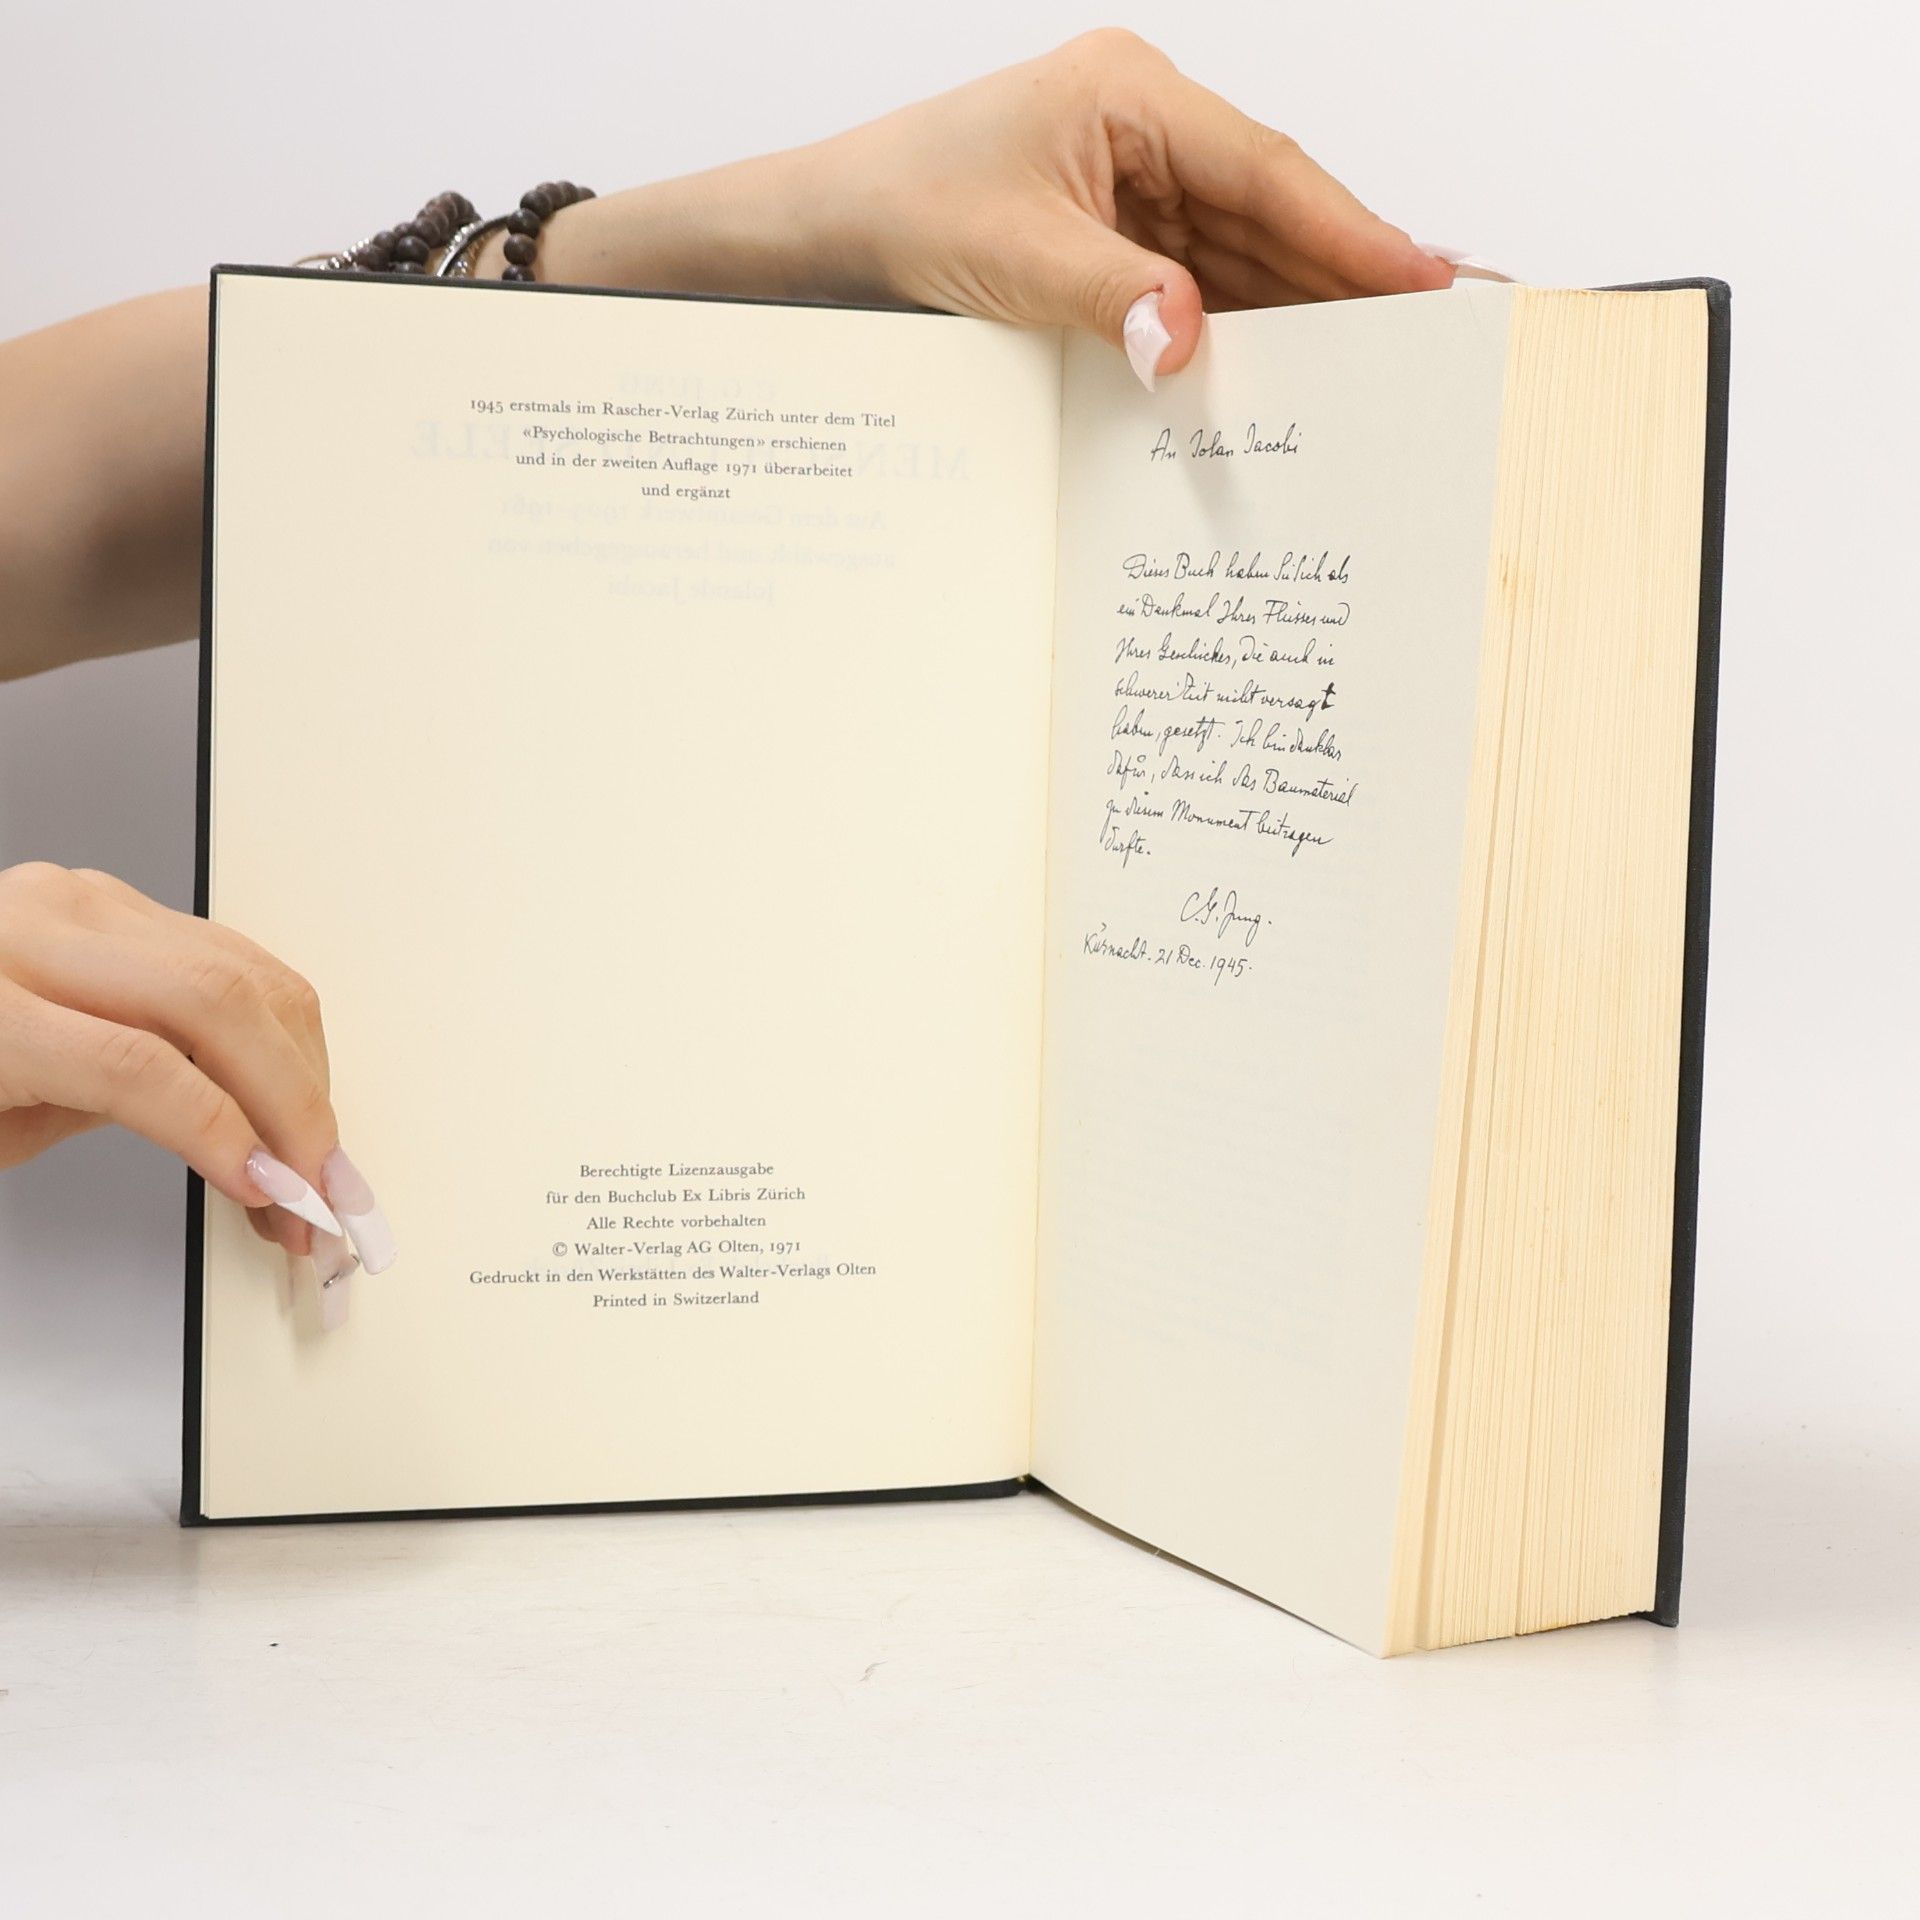 1945 erstmals im Rascher-Verlag Zürich unter dem Titel
«Psychologische Betrachtungen» erschienen
und in der zweiten Auflage 1971 überarbeitet
und ergänzt
Berechtigte Lizenzausgabe
für den Buchclub Ex Libris Zürich
Alle Rechte vorbehalten
© Walter-Verlag AG Olten, 1971
Gedruckt in den Werkstätten des Walter-Verlags Olten
Printed in Switzerland
An Jolan Jacobi
Dieses Buch haben Sie sich als
ein Denkmal Ihres Fleisses und
Ihres Geschickes, die auch in
schwerer Zeit nicht versagt
haben, gesetzt. Ich bin dankbar
dafür, dass ich das Baumaterial
zu diesem Monument beitragen
durfte.
C.G. Jung.
Küsnacht. 21 Dec. 1945.